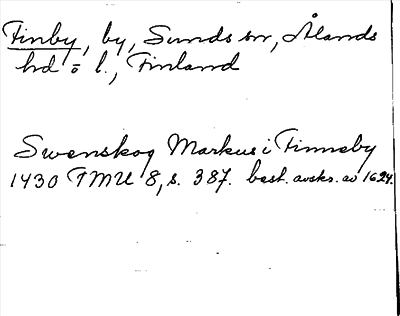 Finby, by, Sunds sn, Ålands
hd o l., Finland
Swenskog Markus i Finneby
1430 FMU 8, s. 387. best. avskr. av 1624.